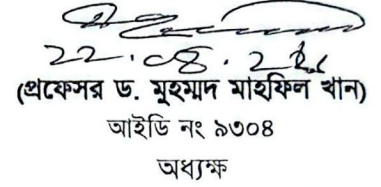 22.08.
(প্রফেসর ড. মুহম্মদ মাহফিল খান)
আইডি নং ৯৩০৪
অধ্যক্ষ